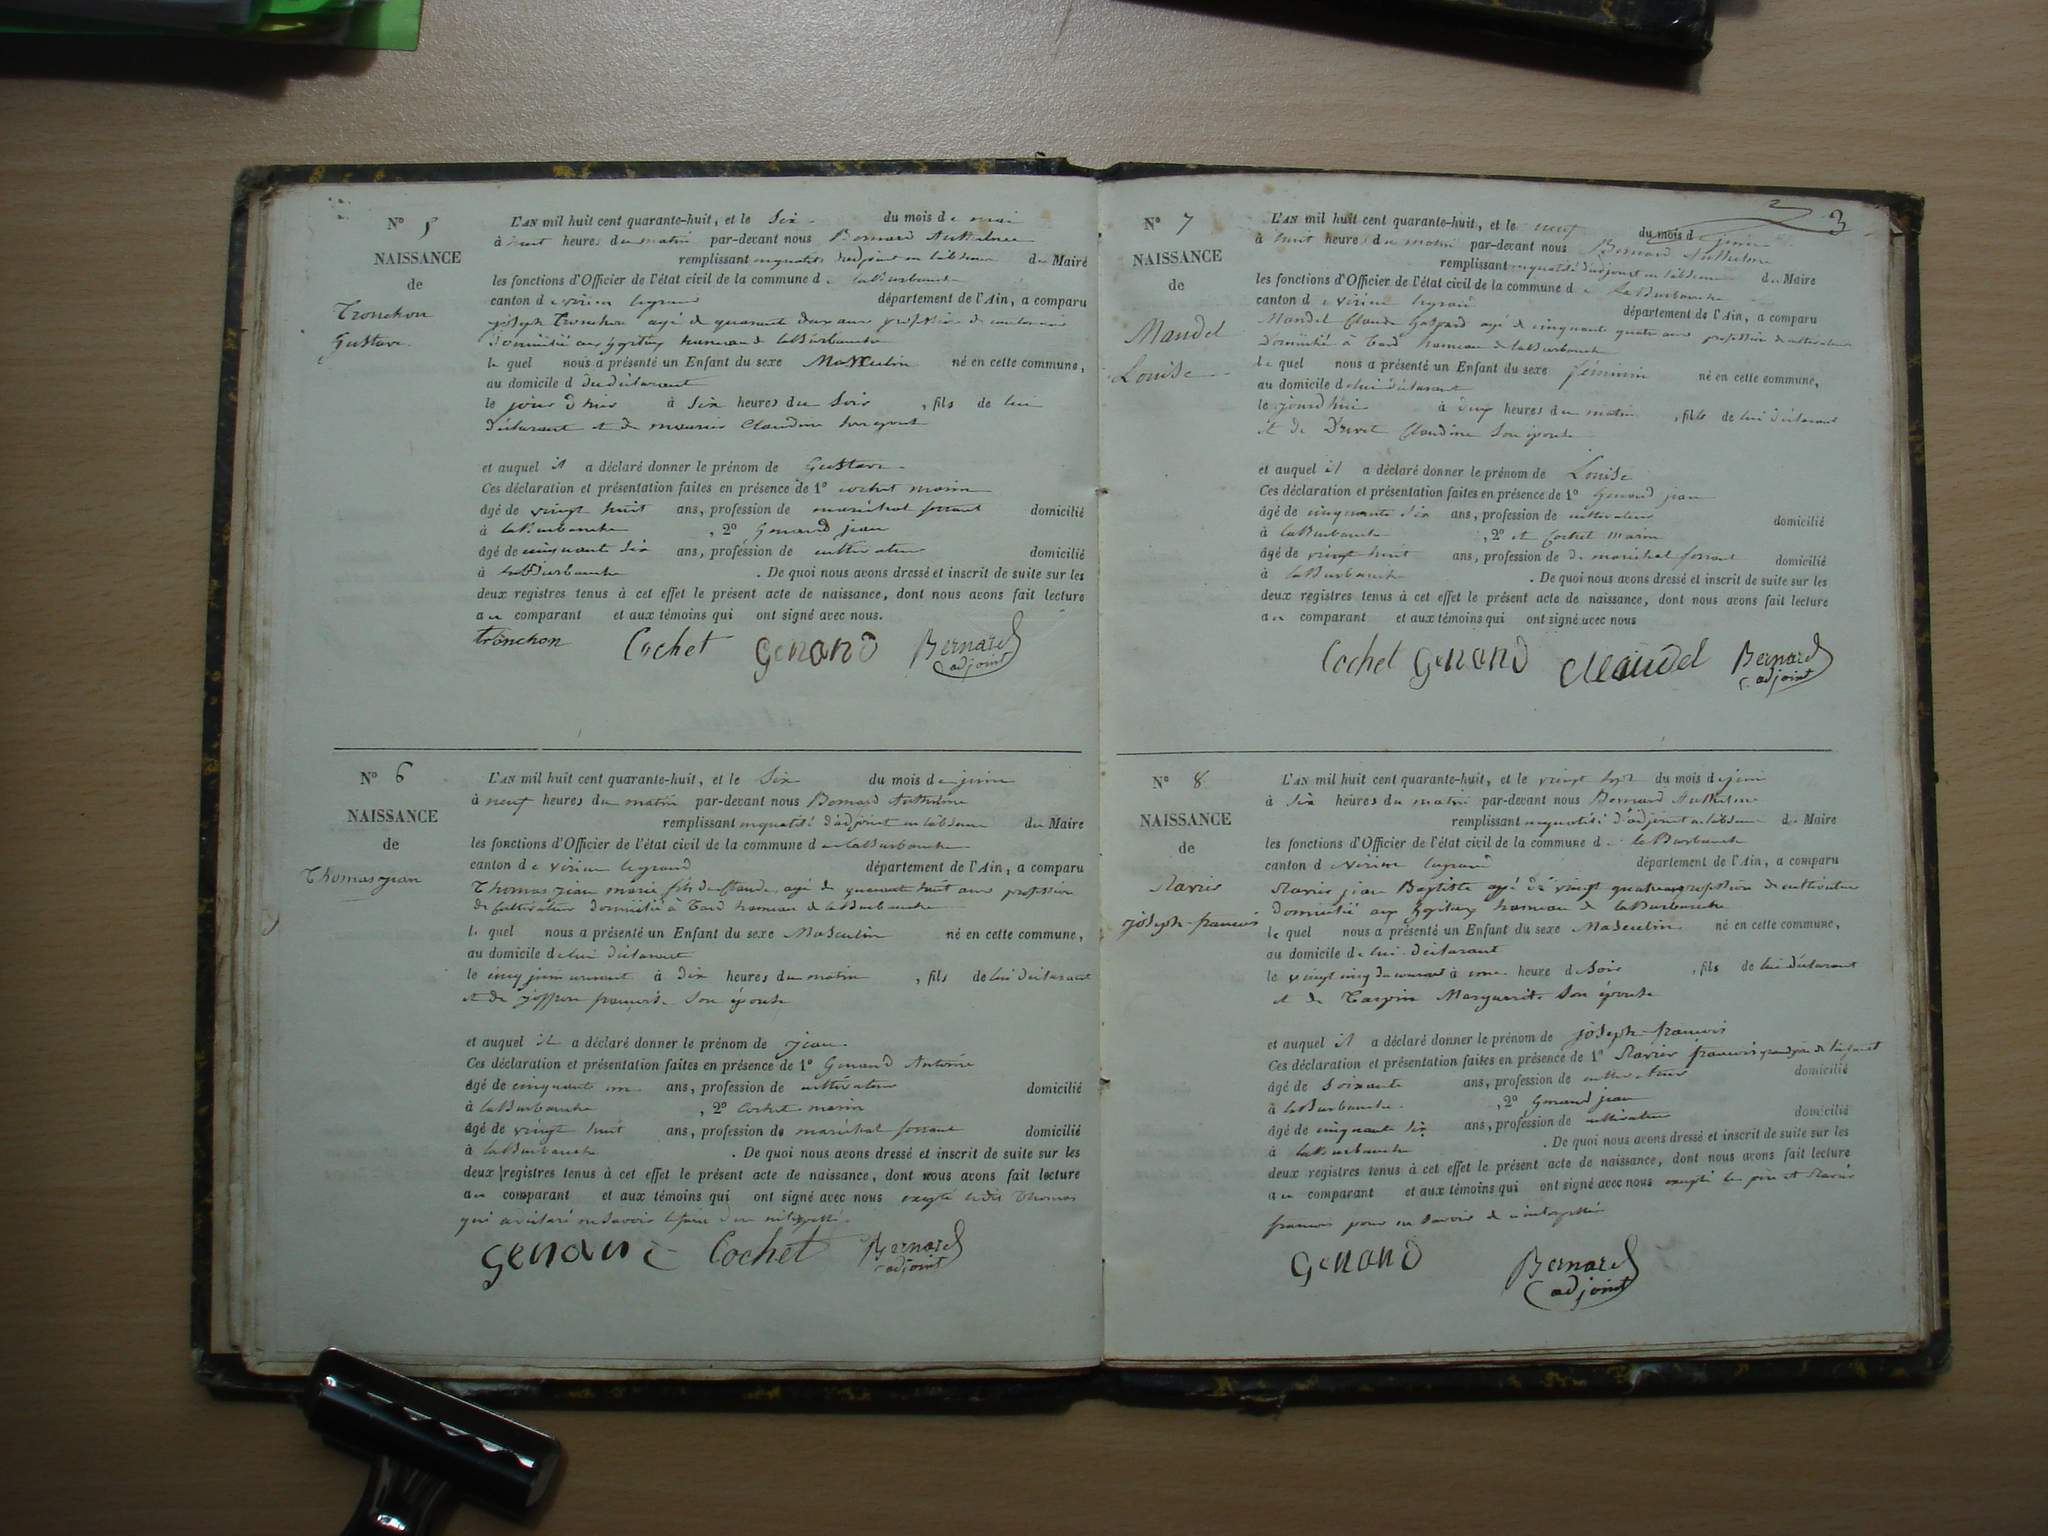 N° 5
NAISSANCE
de
Tronchon
Gustave
L'AN mil huit cent quarante-huit, et le Six du mois de mai
à huit heures du matin par-devant nous Bernard Anthelme
remplissant enqualité d'adjoint en l'absence du Maire
les fonctions d'Officier de l'état civil de la commune de laBurbanche
canton de virieu legrand département de l'Ain, a comparu
joseph Tronchon agé de quarante deux ans profession de
domicilié aux hopitaux hameau de laBurbanche
le quel nous a présenté un Enfant du sexe Masculin né en cette commune,
au domicile d dudéclarant
le jour d hier à Six heures du Soir , fils de lui
déclarant et de Claudine
et auquel il a déclaré donner le prénom de Gustave
Ces déclaration et présentation faites en présence de 1° cochet marin
âgé de vingt huit ans, profession de maréchal ferrant domicilié
à laBurbanche , 2° Genand jean
âgé de cinquante Six ans, profession de cultivateur domicilié
à laBurbanche . De quoi nous avons dressé et inscrit de suite sur les
deux registres tenus à cet effet le présent acte de naissance, dont nous avons fait lecture
au comparant et aux témoins qui ont signé avec nous.
tronchon Cochet Genand Bernard
adjoint
N° 6
NAISSANCE
de
Thomas jean
L'AN mil huit cent quarante-huit, et le Six du mois de juin
à neuf heures du matin par-devant nous Bernard Anthelme
remplissant enqualité d'adjoint en l'absence du Maire
les fonctions d'Officier de l'état civil de la commune de laBurbanche
canton de virieu legrand département de l'Ain, a comparu
Thomas jean marie fils de Claude, agé de quarante huit ans profession
de Cultivateur domicilié à Tard hameau de laBurbanche
le quel nous a présenté un Enfant du sexe Masculin né en cette commune,
au domicile de lui déclarant
le cinq juin courant à dix heures du matin , fils de lui déclarant
et de françoise Son épouse
et auquel il a déclaré donner le prénom de jean
Ces déclaration et présentation faites en présence de 1° Genand Antoine
âgé de cinquante un ans, profession de cultivateur domicilié
à laBurbanche , 2° Cochet marin
âgé de vingt huit ans, profession de maréchal ferrant domicilié
à laBurbanche . De quoi nous avons dressé et inscrit de suite sur les
deux registres tenus à cet effet le présent acte de naissance, dont nous avons fait lecture
au comparant et aux témoins qui ont signé avec nous excepté ledit Thomas
qui a déclaré ne savoir le faire
Genand Cochet Bernard
adjoint
3
N° 7
NAISSANCE
de
Maudel
Louise
L'AN mil huit cent quarante-huit, et le neuf du mois de juin
à huit heures du matin par-devant nous Bernard Anthelme
remplissant enqualité d'adjoint en l'absence du Maire
les fonctions d'Officier de l'état civil de la commune de laBurbanche
canton de virieu legrand département de l'Ain, a comparu
Maudel Claude Gaspard agé de cinquante quatre ans profession de cultivateur
domicilié à Tard hameau de laBurbanche
le quel nous a présenté un Enfant du sexe féminin né en cette commune,
au domicile de lui déclarant
le jourdhui à deux heures du matin , fille de lui déclarant
et de Claudine Son épouse
et auquel il a déclaré donner le prénom de Louise
Ces déclaration et présentation faites en présence de 1° Genand jean
âgé de cinquante Six ans, profession de cultivateur domicilié
à laBurbanche , 2° et Cochet Marin
âgé de vingt huit ans, profession de de maréchal ferrant domicilié
à laBurbanche . De quoi nous avons dressé et inscrit de suite sur les
deux registres tenus à cet effet le présent acte de naissance, dont nous avons fait lecture
au comparant et aux témoins qui ont signé avec nous
Cochet Genand Maudel Bernard
adjoint
N° 8
NAISSANCE
de
Ravier
joseph-francois
L'AN mil huit cent quarante-huit, et le vingt Sept du mois de juin
à Six heures du matin par-devant nous Bernard Anthelme
remplissant enqualité d'adjoint en l'absence du Maire
les fonctions d'Officier de l'état civil de la commune de laBurbanche
canton de virieu legrand département de l'Ain, a comparu
Ravier jean Baptiste agé de vingt quatre ans profession de cultivateur
domicilié aux hopitaux hameau de laBurbanche
le quel nous a présenté un Enfant du sexe Masculin né en cette commune,
au domicile de lui déclarant
le vingt cinq du courant à une heure d Soir , fils de lui déclarant
et de Marguerite Son épouse
et auquel il a déclaré donner le prénom de joseph-francois
Ces déclaration et présentation faites en présence de 1° Ravier francois grand père de l'enfant
âgé de Soixante ans, profession de cultivateur domicilié
à laBurbanche , 2° Genand jean
âgé de cinquante six ans, profession de cultivateur domicilié
à laBurbanche . De quoi nous avons dressé et inscrit de suite sur les
deux registres tenus à cet effet le présent acte de naissance, dont nous avons fait lecture
au comparant et aux témoins qui ont signé avec nous excepté le père et Ravier
francois pour ne Savoir de
Genand Bernard
adjoint